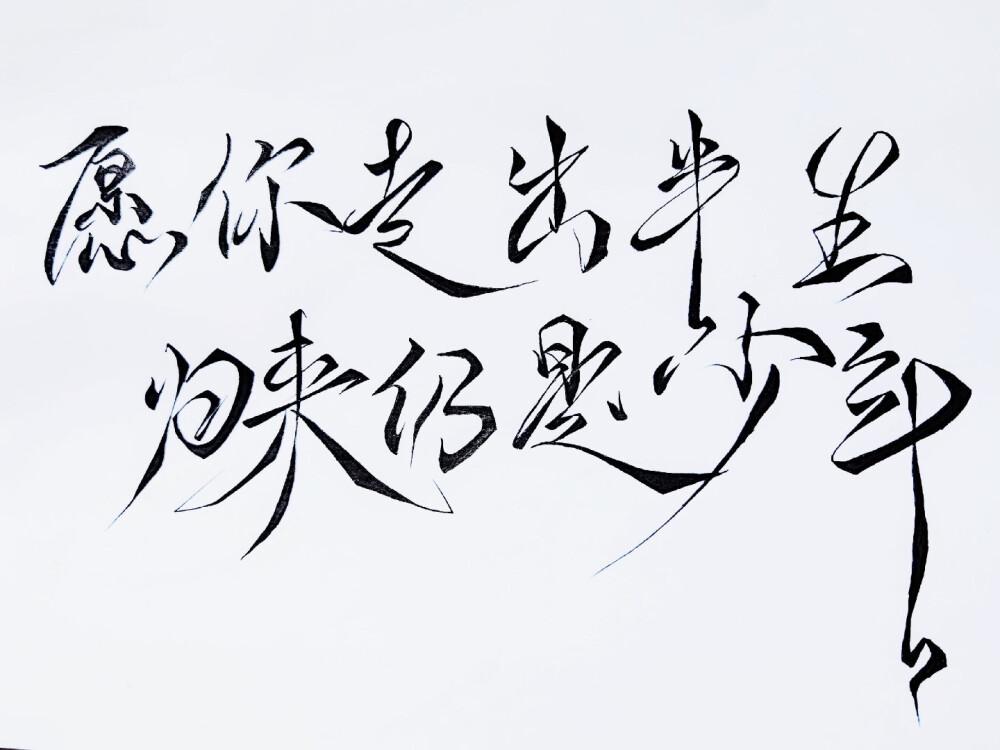 愿你走出半生
归来仍是少年